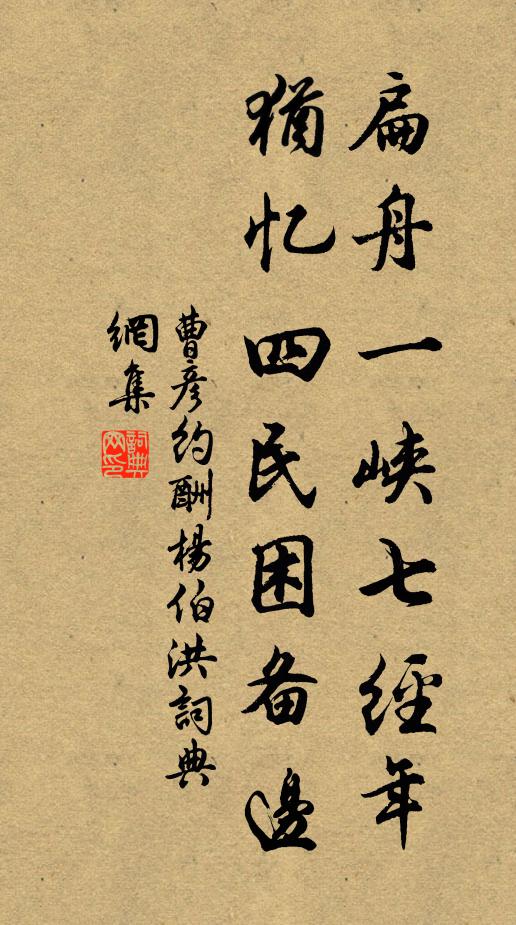 扁舟一峡七經年
猶忆四民困备邊
曹彦約酬楊伯洪詞典
網集
詞典
网印